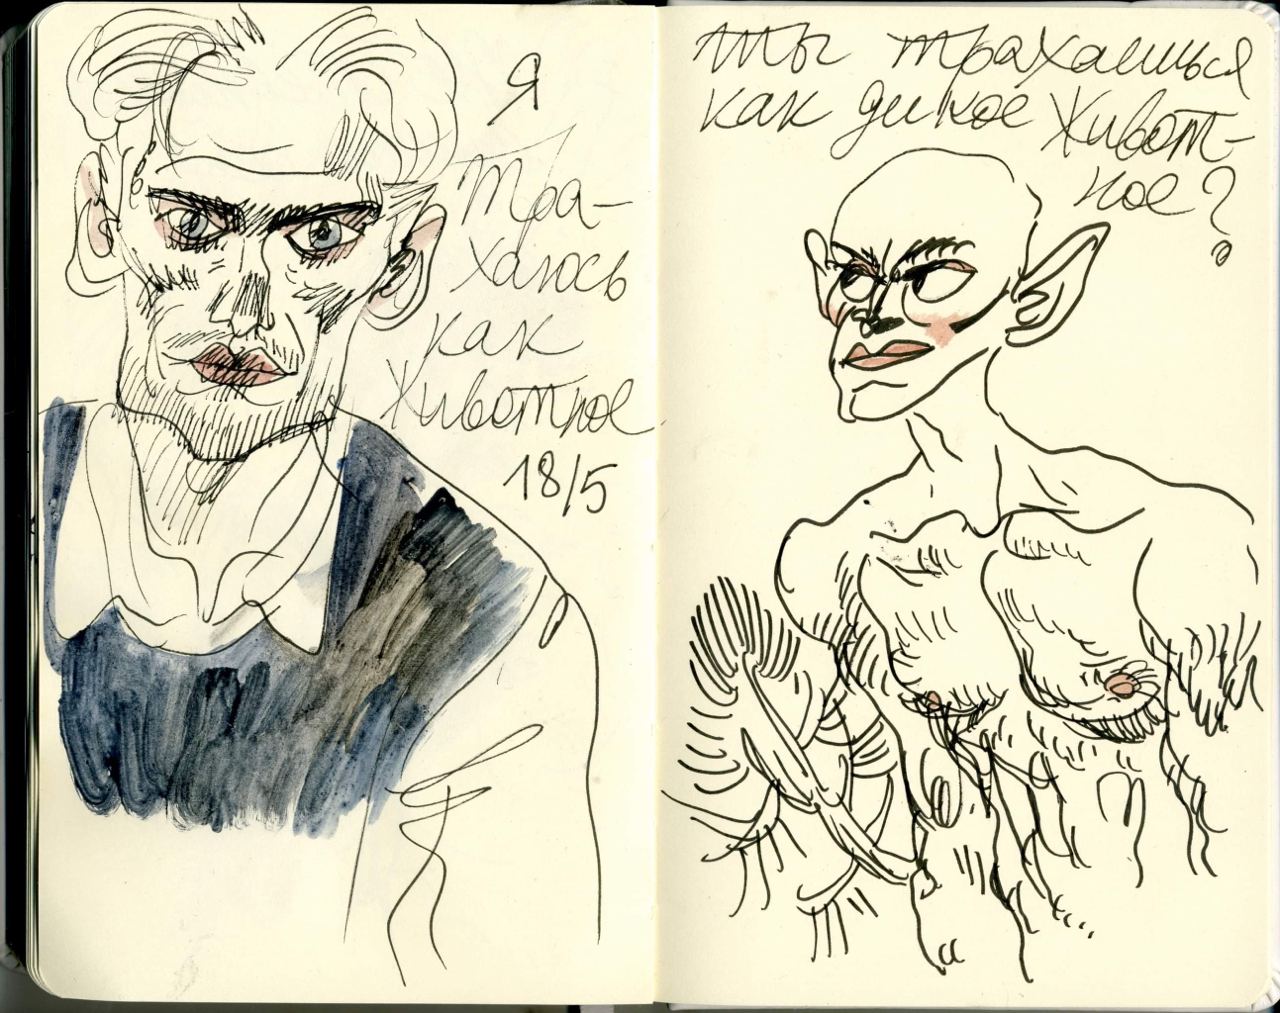 Я
тра-
хаюсь
как
животное
18/5
ты трахаешься
как дикое живот-
ное?